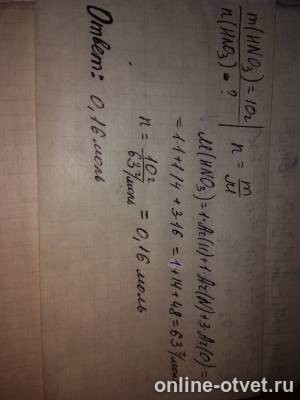 m(HNO₃) = 10г
n(HNO₃) = ?
n = m/M
M(HNO₃) = 1·Ar(H) + 1·Ar(N) + 3·Ar(O) =
= 1·1 + 1·14 + 3·16 = 1 + 14 + 48 = 63 г/моль
n = 10г / 63 г/моль = 0,16 моль
Ответ: 0,16 моль
online-otvet.ru